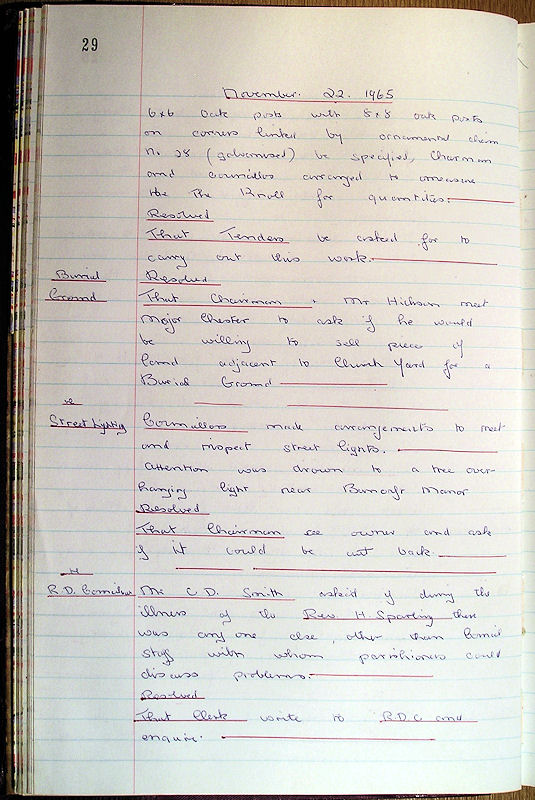 29
November. 22. 1965
6x6 Oak posts with 8x8 oak posts
on corners linked by ornamental chain
No. 28 (galvanised) be specified, Chairman
and councillors arranged to measure
the The Knoll for quantities.
Resolved
That Tenders be asked for to
carry out this work.
Burial Resolved
Ground That Chairman + Mr Hickson meet
Major Chester to ask if he would
be willing to sell piece of
land adjacent to Church Yard for a
Burial Ground
re
Street Lighting Councillors made arrangements to meet
and inspect street lights.
Attention was drawn to a tree over-
hanging light near Manor
Resolved
That Chairman see owner and ask
if it could be cut back.
R.D. Mr C D. Smith asked if during the
illness of the Rev. H. Sparling there
was any one else, other than Council
staff with whom parishioners could
discuss problems.
Resolved
That Clerk write to R.D.C and
enquire.